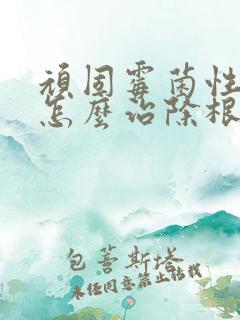 頑固霉菌性
怎麼治除根
包薈斯塔
未经同意禁止转载